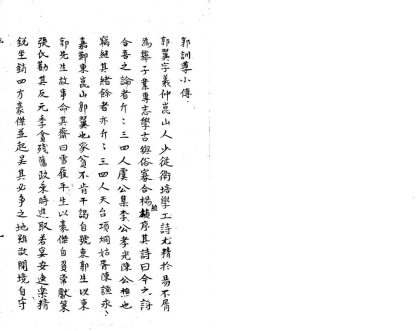 郭訓導小傳
郭翼字羲仲崑山人少從衛培學工詩尤精於易不屑
為舉子業專志學古與俗寡合楊維楨序其詩曰今之詩
合吾之論者斤々三四人虞公集李公孝光陳公樵也
竊繼其緒餘者亦斤々三四人天台項炯姑胥陳謙永
嘉鄭東崑山郭翼也家貧不肯干謁自號東郭生以東
郭先生故事命其齋曰雪履平生以豪傑自負嘗獻策
張氏勸其反元季貪殘舊政乘時進取若妄安逸樂精
銳坐銷四方豪傑並起吳其必爭之地雖欲閉境自守